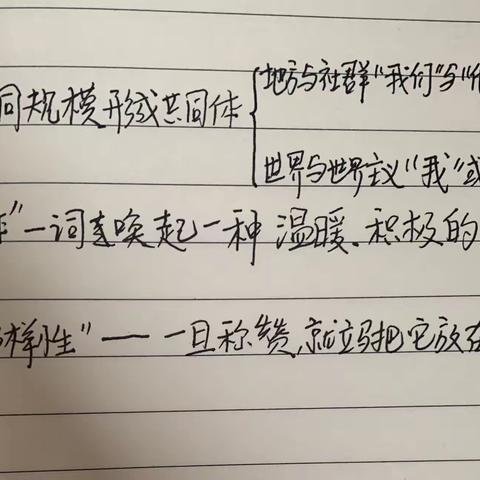 地方与社群"我们"与"他
同规模形成共同体
世界与世界主义"我"或
"一词意唤起一种温暖、积极的
样性"——一旦称赞,就立马把它放在